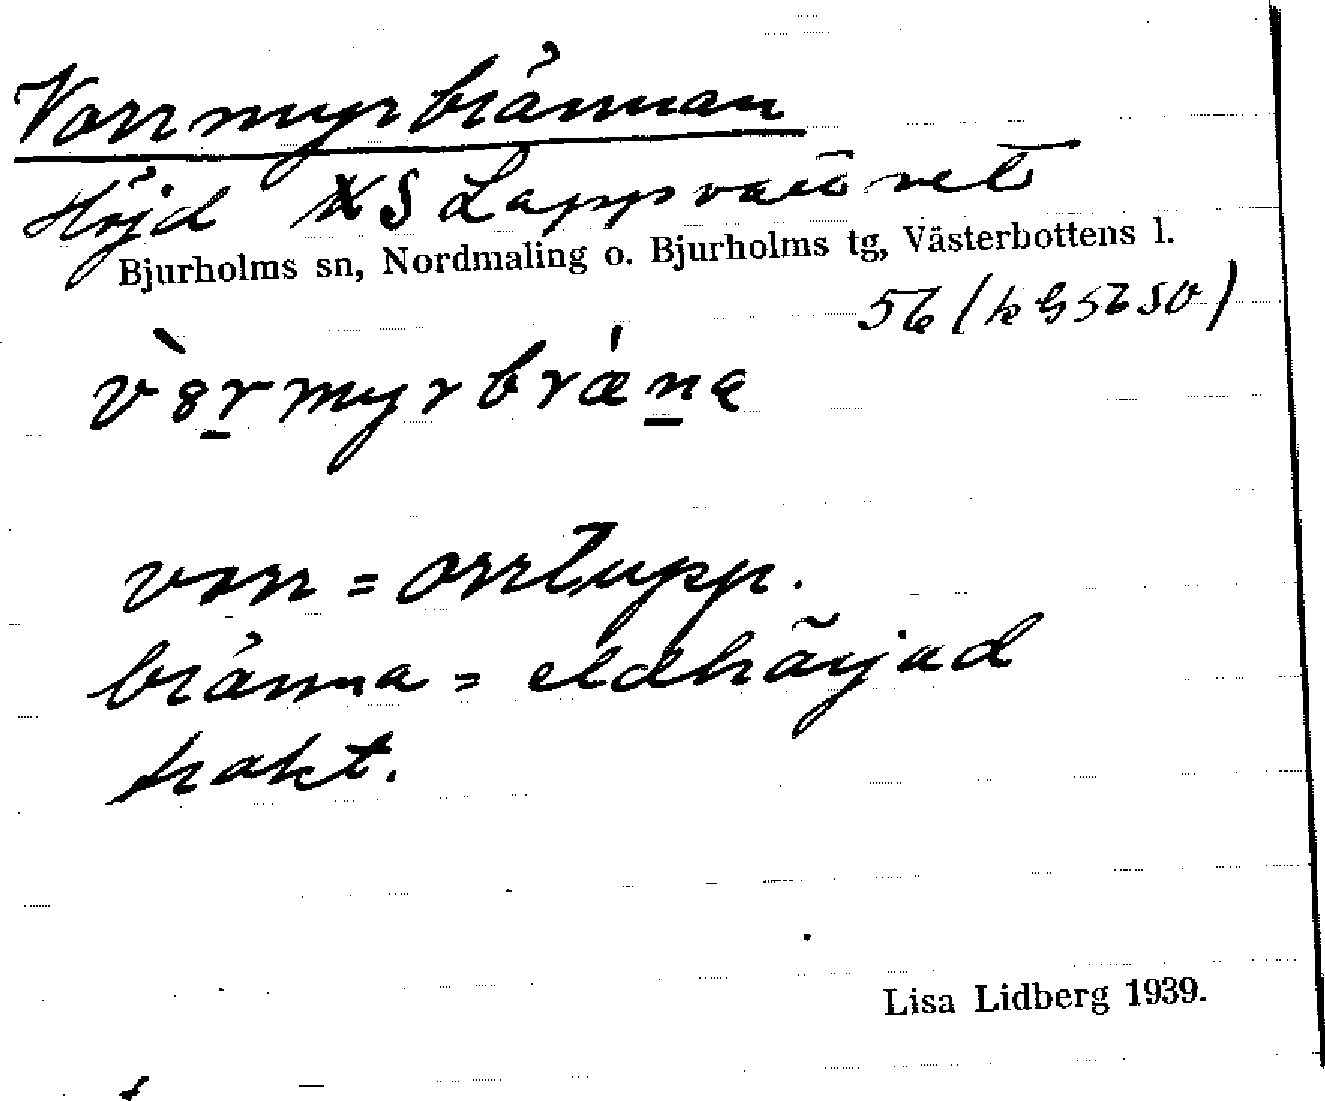 Vorrmyrbrännan
Höjd S Lappvattnet
Bjurholms sn, Nordmaling o. Bjurholms tg, Västerbottens l.
56 (k G 56 SV)
v̀ȣr̲myrbrǽn̲ą
vorr = orrtupp.
bränna = eldhärjad
trakt.
Lisa Lidberg 1939.